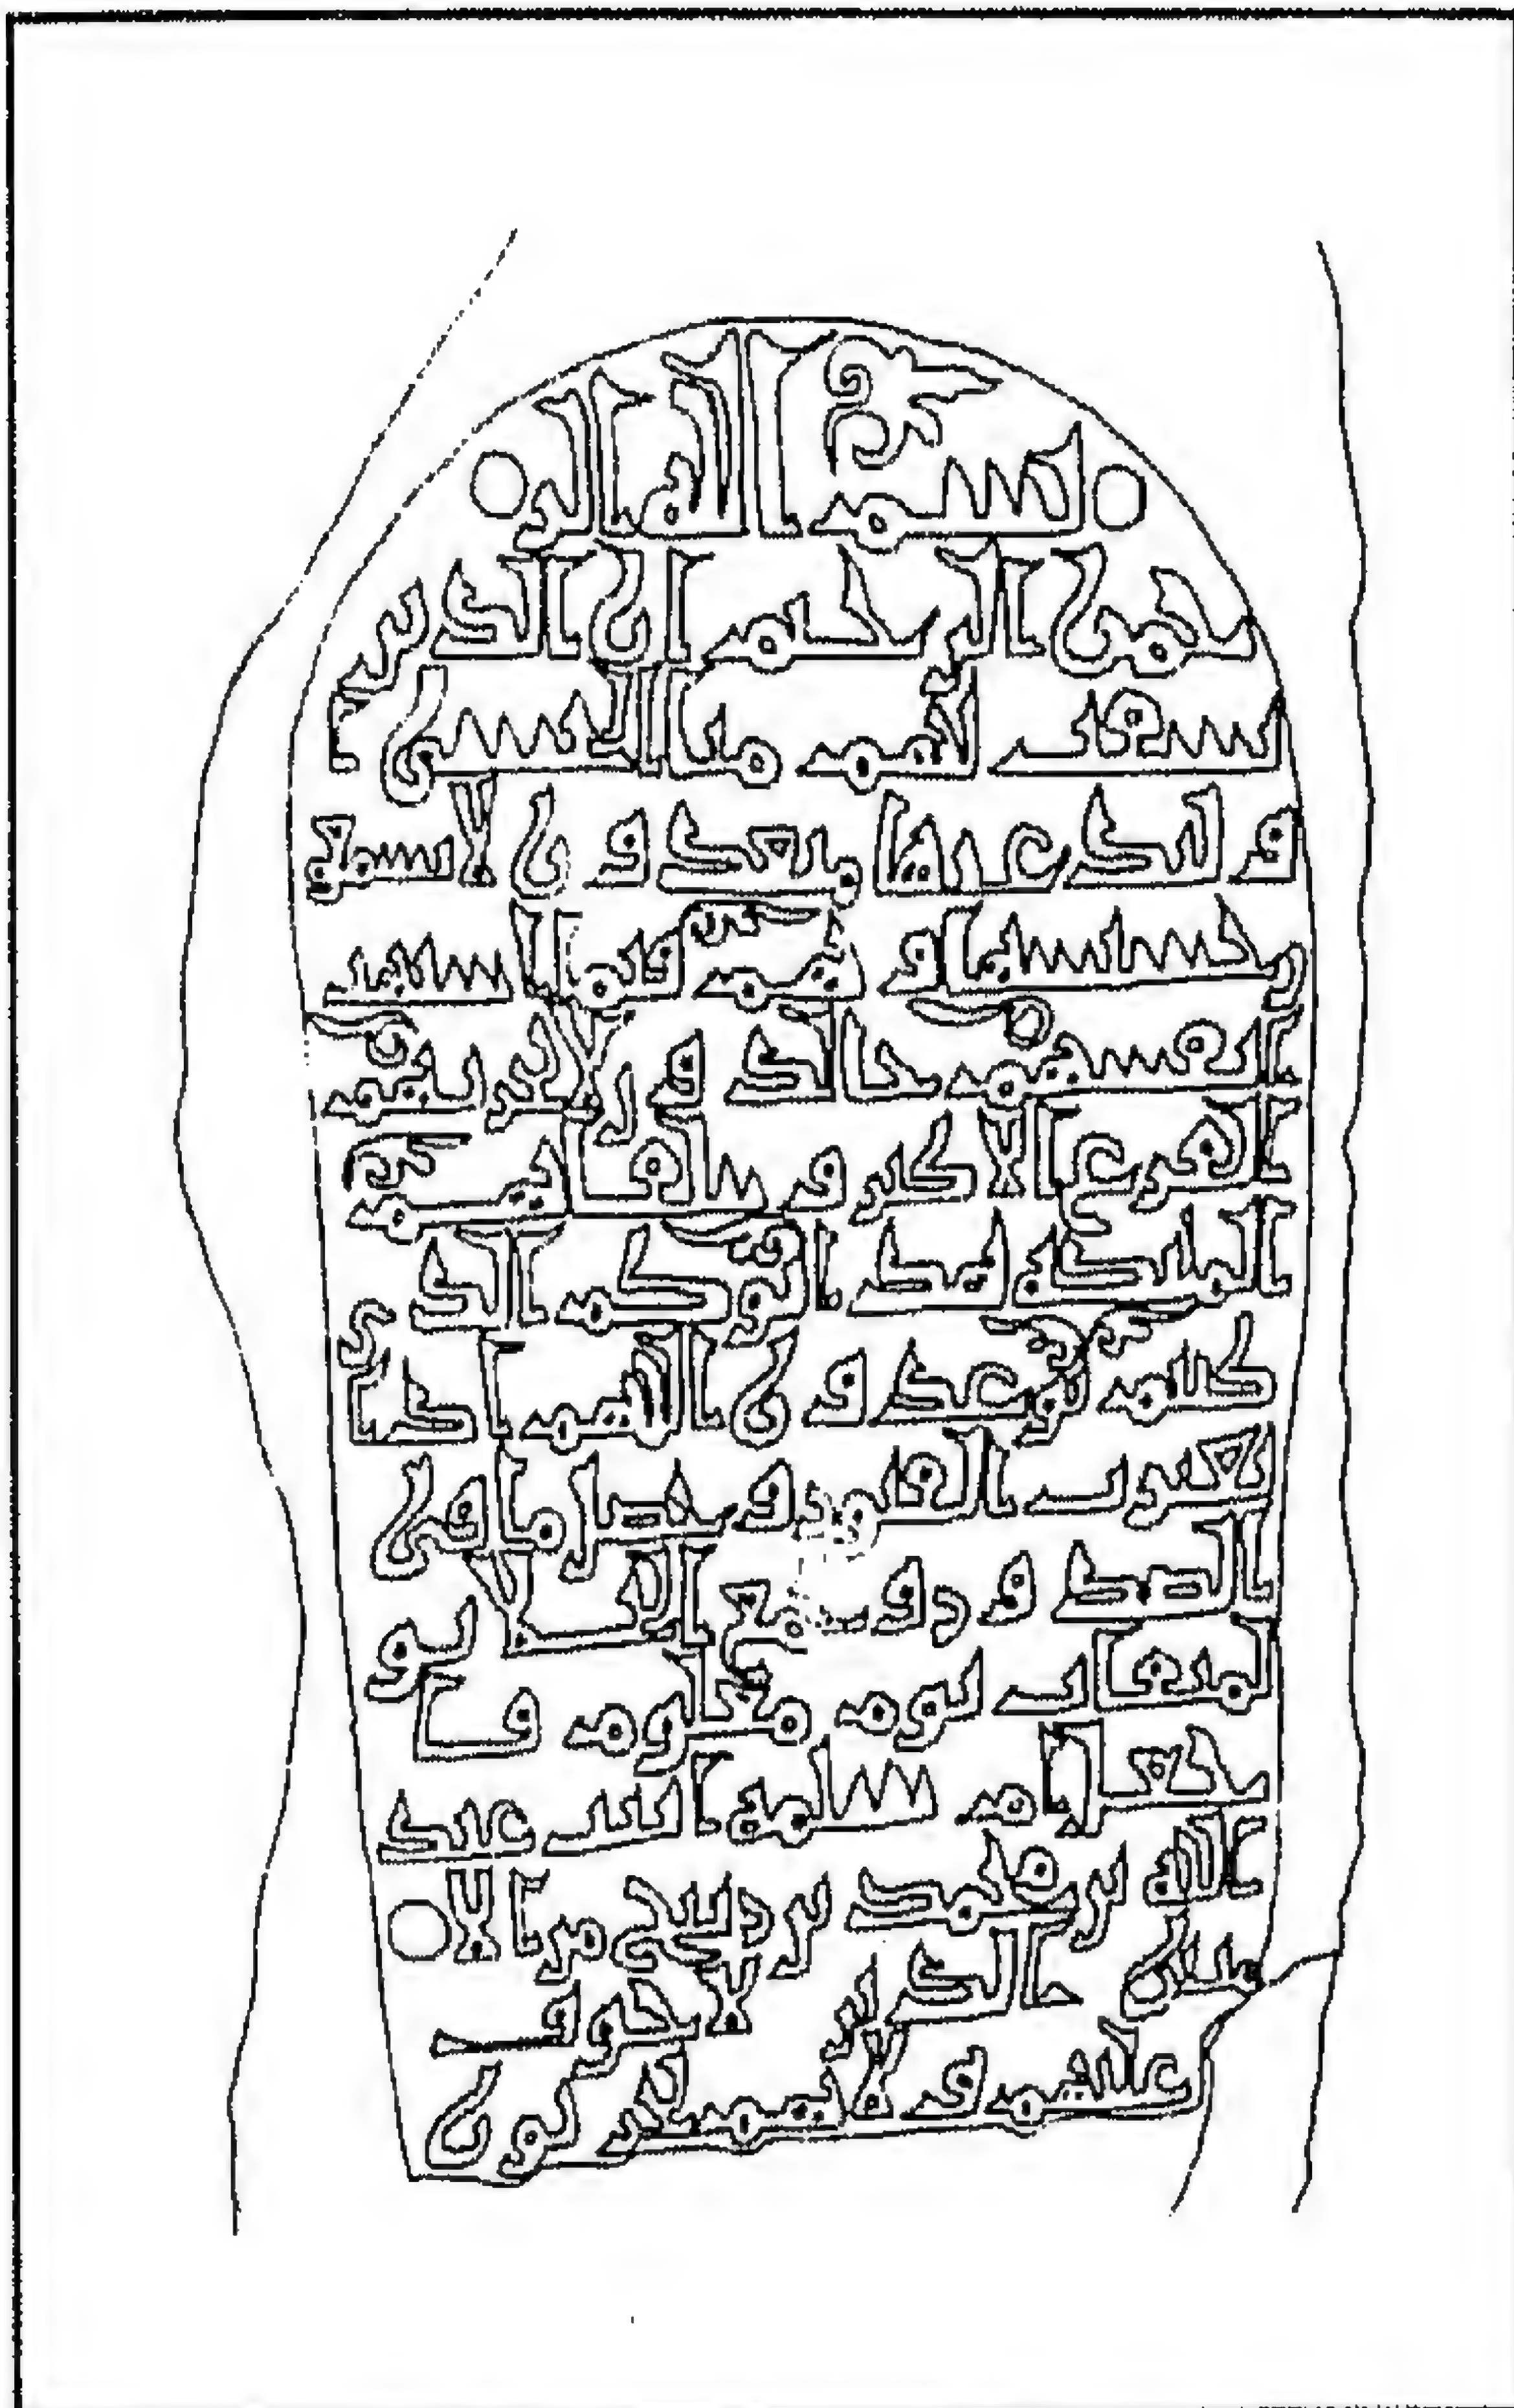 بسم الله الر
حمن الرحيم ان الذين
سبقت لهم منا الحسنى ا
ولئك عنها مبعدون لا يسمعو
ن حسيسها وهم فيما اشتهت
انفسهم خلدون لا يحزنهم
الفزع الاكبر وتتلقاهم
الملئكة هذا يومكم الذي
كنتم توعدون اللهم اذا
بعثرت القبور وحصل ما في
الصدور وجمع الخلايق
لميقات يوم معلوم فا
جعل ام سلمة ابنت عبد
الله بن محمد بن من الا
منين الذين لا خوف
عليهم ولا هم يحزنون